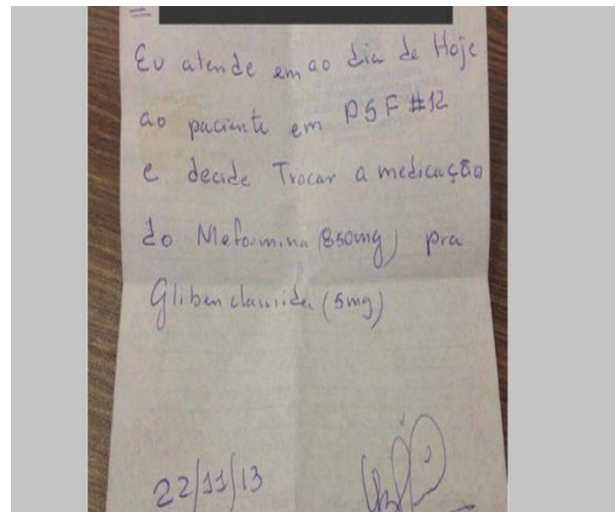 Eu atende em ao dia de Hoje
ao paciente em PSF #12
e decide Trocar a medicação
do Meformina (850mg) pra
Glibenclamida (5mg)
22/11/13